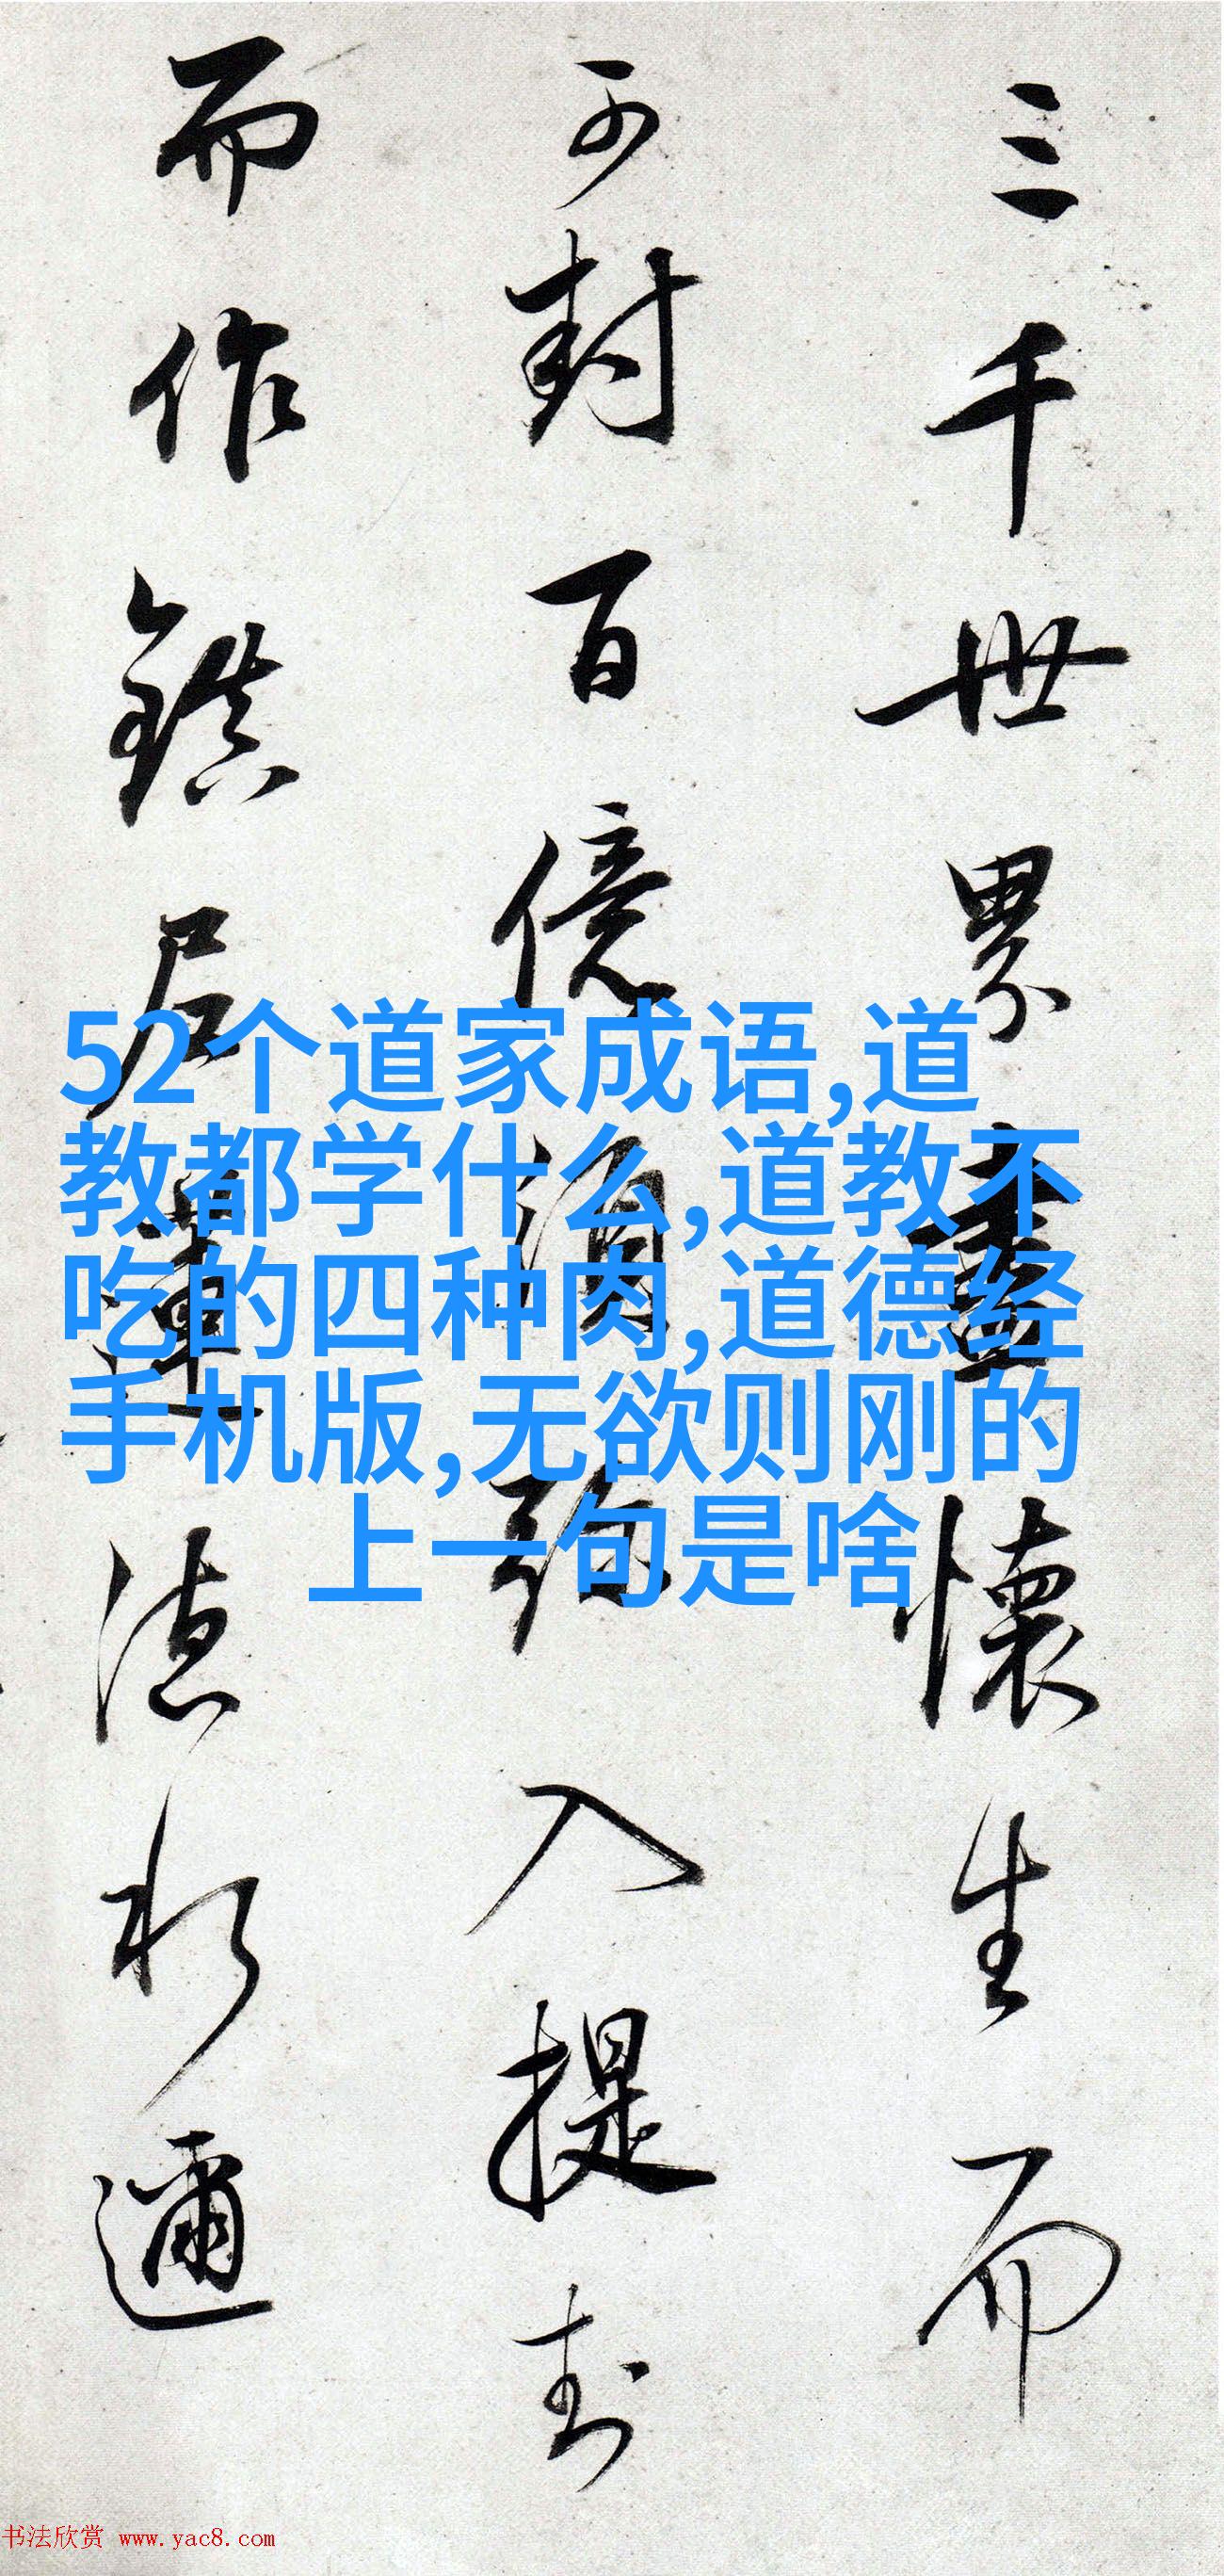 三千世界臺懷生而
可封百億須弥入提封
而作鎮居輦
而作鎮居
52个道家成语,道
教都学什么,道教不
吃的四种肉,道德经
手机版,无欲则刚的
上一句是啥
书法欣赏 www.yac8.com